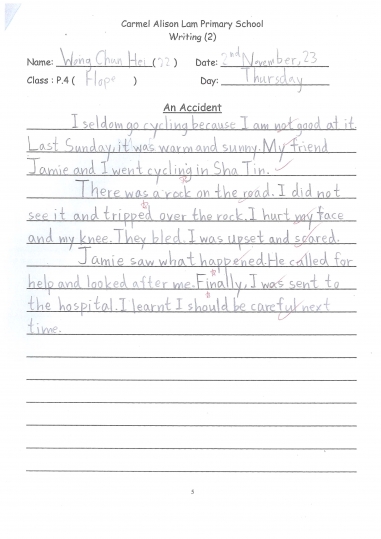 Carmel Alison Lam Primary School
Writing (2)
Name: Wong Chun Hei (22) Date: 2nd November, 23
Class : P.4 ( Hope ) Day: Thursday
An Accident
I seldom go cycling because I am not good at it.
Last Sunday, it was warm and sunny. My friend
Jamie and I went cycling in Sha Tin.
There was a rock on the road. I did not
see it and tripped over the rock. I hurt my face
and my knee. They bled. I was upset and scared.
Jamie saw what happened. He called for
help and looked after me. Finally, I was sent to
the hospital. I learnt I should be careful next
time.